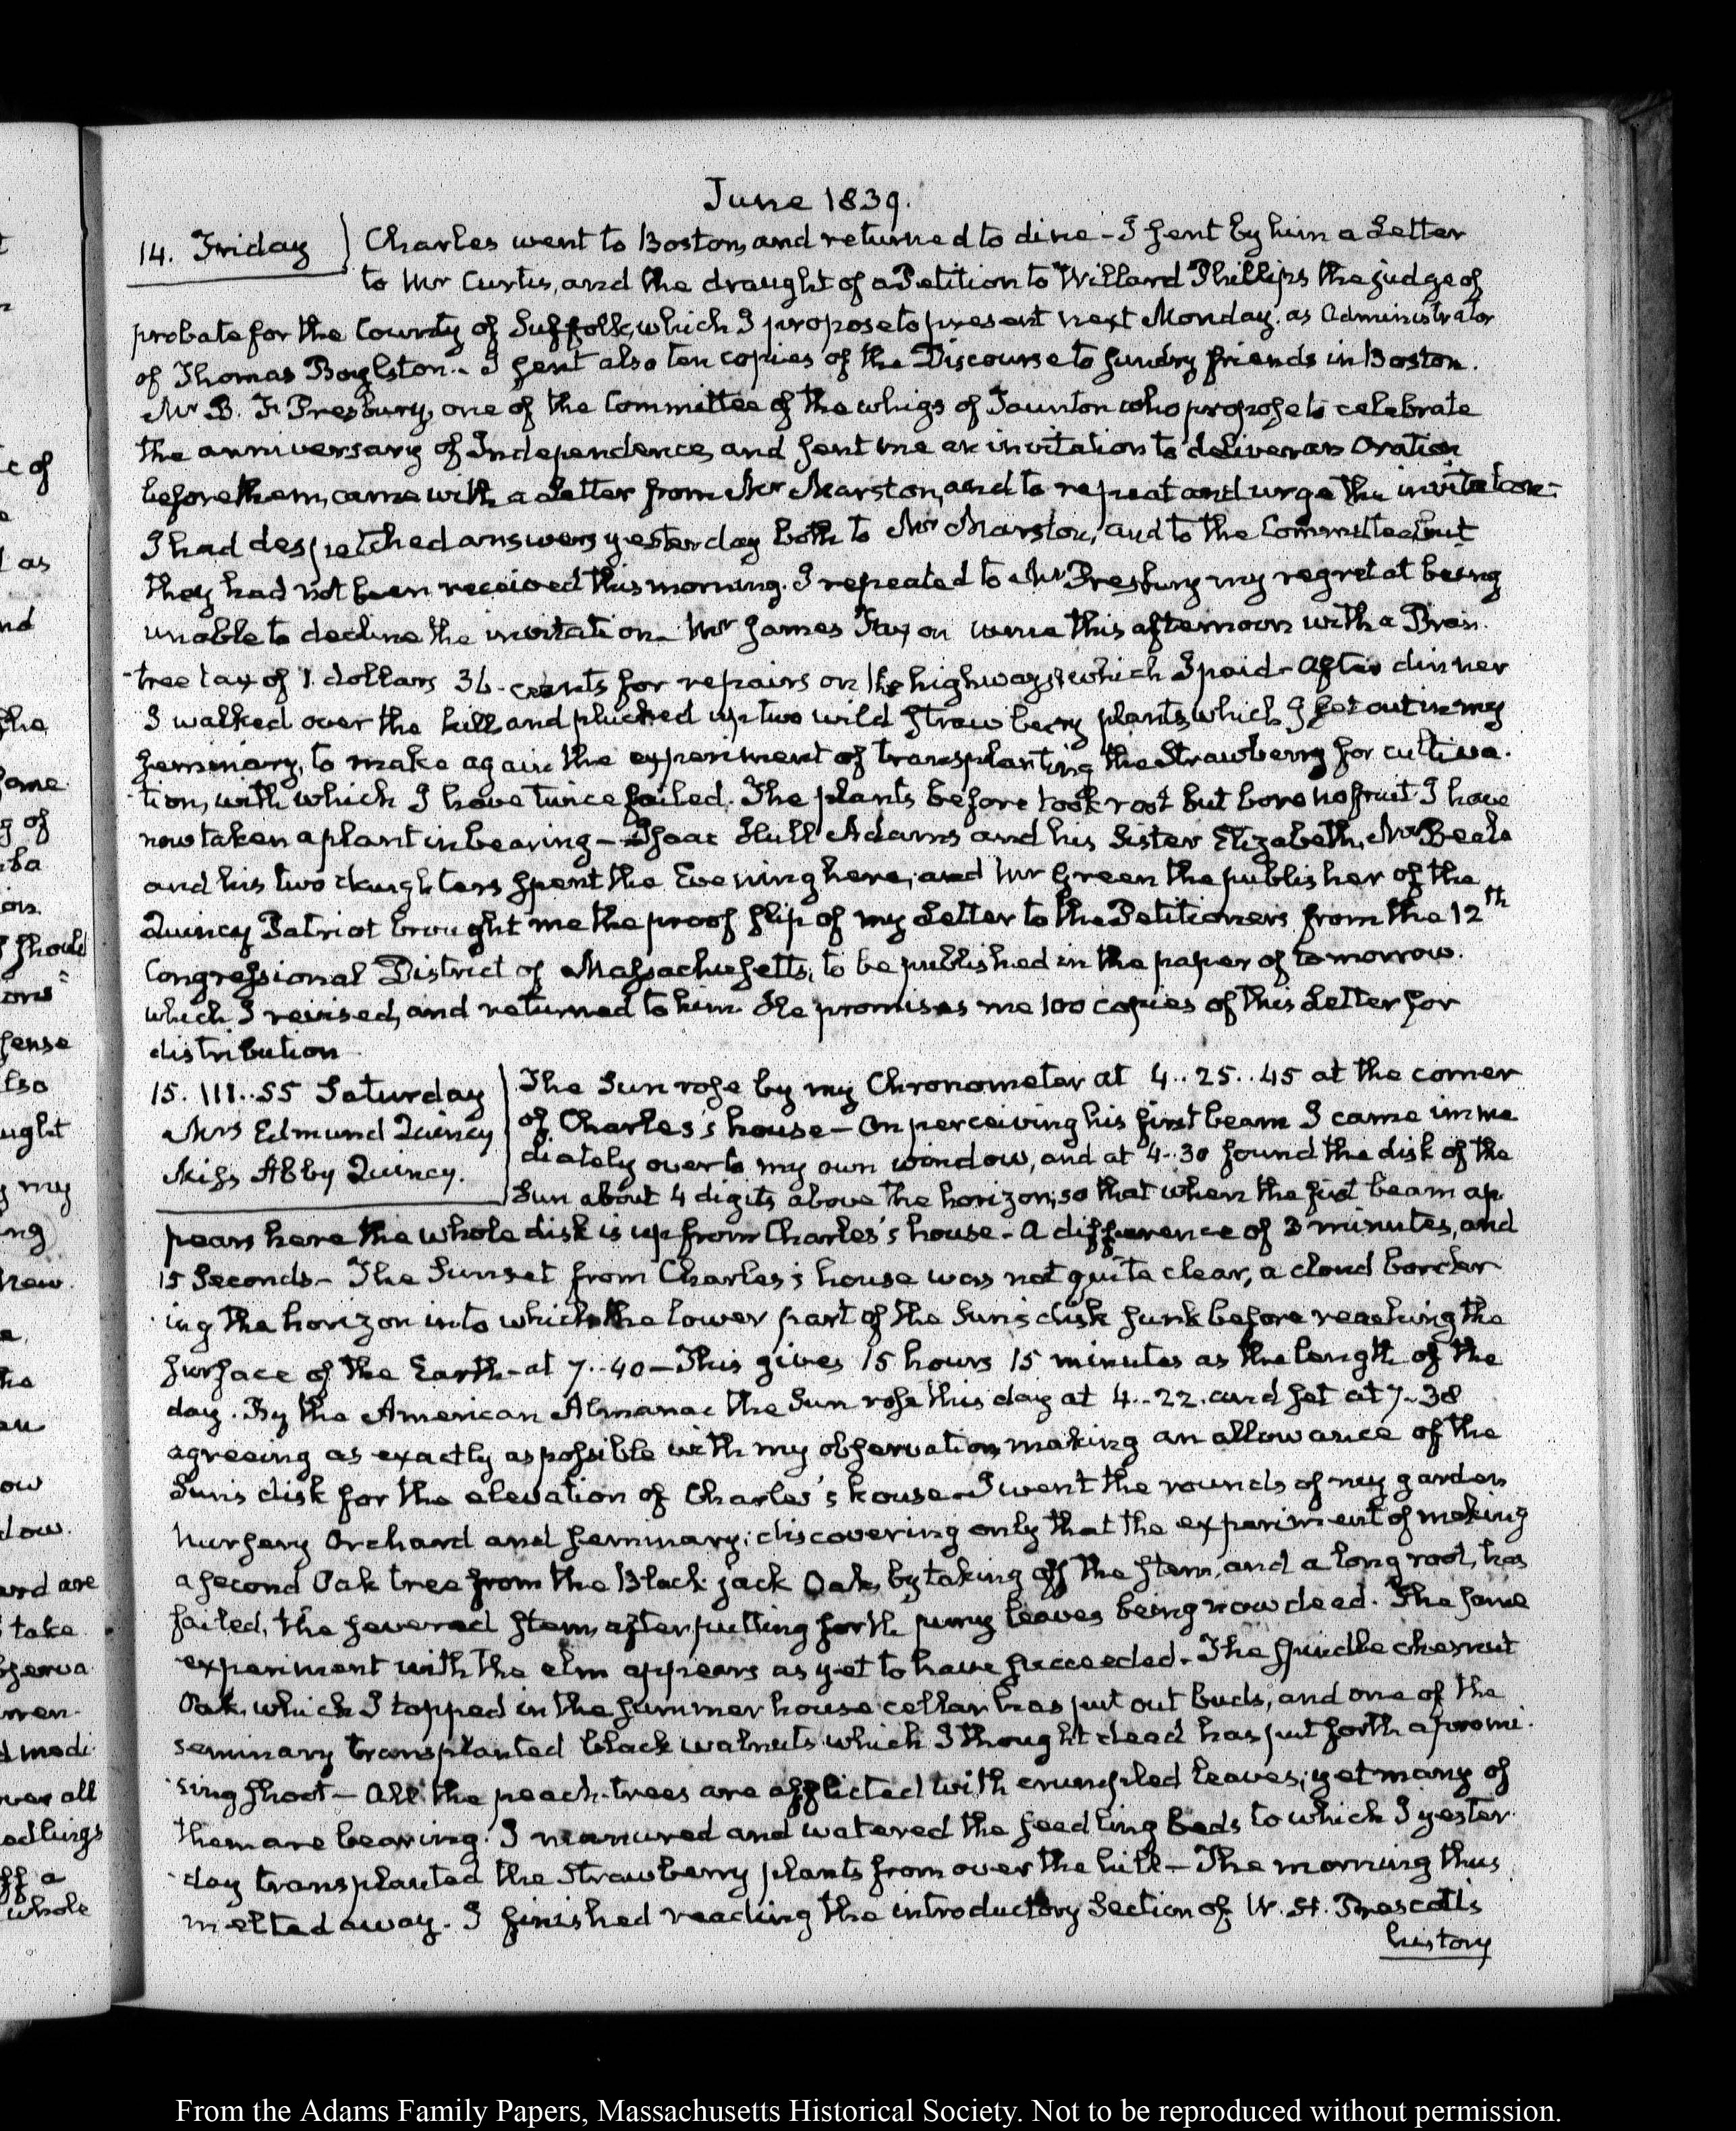 June 1839.
14. Friday Charles went to Boston, and returned to dine – I sent by him a Letter
to Mr Curtis, and the draught of a Petition to Willard Phillips the judge of
probate for the County of Suffolk, which I propose to present next Monday. as Administrator
of Thomas Boylston. – I sent also ten copies of the Discourse to sundry friends in Boston.
Mr B. F. Presbury, one of the Committee of the whigs of Taunton who propose to celebrate
the anniversary of Independence, and sent me an invitation to deliver an Oration
before them, came with a Letter from Mr Marston, and to repeat and urge the invitation –
I had despatched answers yesterday both to Mr Marston, and to the Committee but
they had not been received this morning. I repeated to Mr Presbury my regret at being
unable to decline the invitation – Mr James came this afternoon with a Brain-
tree tax of 1. dollars 36. cents for repairs on the highways which I paid – After dinner
I walked over the hill and plucked up two wild strawberry plants, which I set out in my
seminary, to make again the experiment of transplanting the Strawberry for cultiva-
tion, with which I have twice failed. The plants before took root but bore no fruit. I have
now taken a plant in bearing – Isaac Hull Adams and his Sister Elizabeth, Mr Beale
and his two daughters spent the Evening here; and Mr Green the publisher of the
Quincy Patriot brought me the proof slip of my Letter to the Petitioners from the 12th
Congressional District of Massachusetts, to be published in the paper of tomorrow.
which I revised, and returned to him. He promises me 100 copies of this Letter for
distribution
15. III..55 Saturday The Sun rose by my Chronometer at 4..25..45 at the corner
Mrs Edmund Quincy of Charles's house – On perceiving his first beam I came imme
Miss Abby Quincy. diately over to my own window, and at 4..30 found the disk of the
Sun about 4 digits above the horizon; so that when the first beam ap
pears here the whole disk is up from Charles's house – A difference of 3 minutes, and
15 Seconds – The Sunset from Charles's house was not quite clear, a cloud border
ing the horizon into which the lower part of the Sun's disk sunk before reaching the
surface of the Earth – at 7..40 – This gives 15 hours 15 minutes as the length of the
day. By the American Almanac the Sun rose this day at 4..22. and set at 7..38
agreeing as exactly as possible with my observation, making an allowance of the
Sun's disk for the elevation of Charles's house – I went the rounds of my garden
Nursery Orchard and seminary; discovering only that the experiment of making
a second Oak tree from the Black jack Oak, by taking off the stem, and a long root, has
failed, the severed stem, after putting forth puny leaves being now dead. The same
experiment with the elm appears as yet to have succeeded – The spindle chesnut
Oak, which I topped in the summer house cellar has put out buds, and one of the
seminary transplanted black walnuts which I thought dead has put forth a promi-
sing shoot – All the peach-trees are afflicted with crumpled leaves; yet many of
them are bearing. I manured and watered the seedling beds to which I yester
day transplanted the Strawberry plants from over the hill – The morning thus
melted away. I finished reading the introductory Section of W. H. Prescott's
history
From the Adams Family Papers, Massachusetts Historical Society. Not to be reproduced without permission.